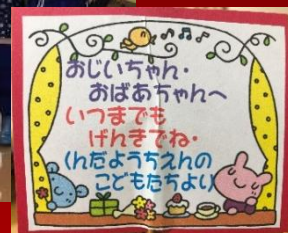 おじいちゃん・
おばあちゃんへ
いつまでも
げんきでね・
くんだようちえんの
こどもたちより